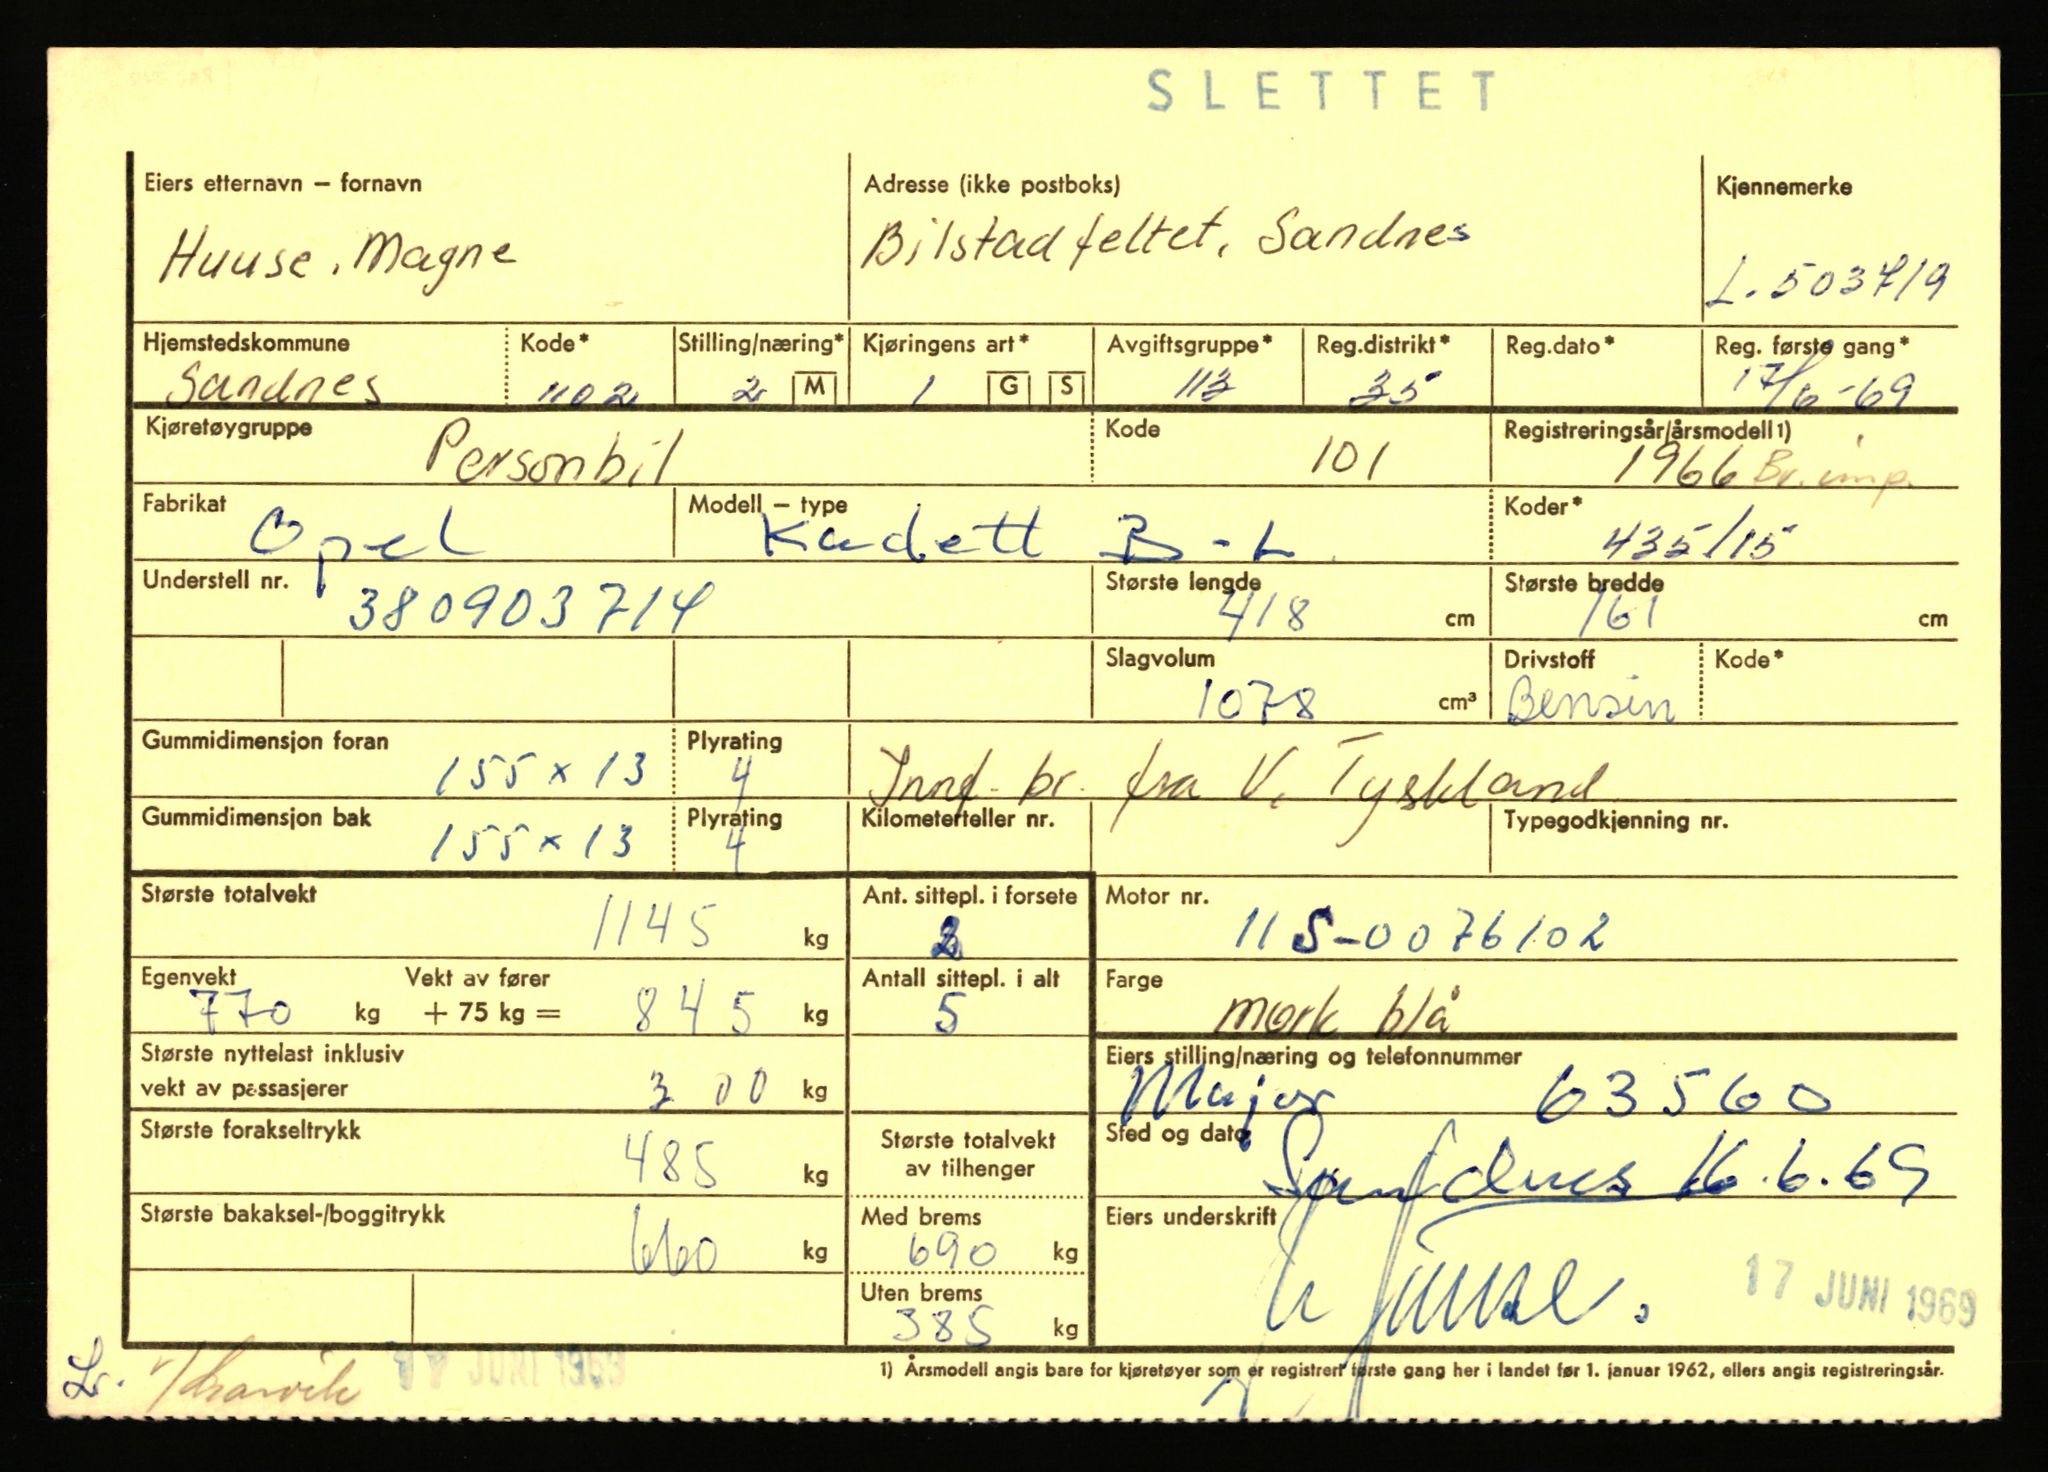 SLETTET
Eiers etternavn – fornavn
Huuse, Magne
Adresse (ikke postboks)
Bilstadfeltet, Sandnes
Kjennemerke
L-503719
Hjemstedskommune
Sandnes
Kode*
1102
Stilling/næring*
2 M
Kjøringens art*
1 G S
Avgiftsgruppe*
113
Reg.distrikt*
35
Reg.dato*
Reg. første gang*
17/6-69
Kjøretøygruppe
Personbil
Kode
101
Registreringsår/årsmodell 1)
1966 Br. imp.
Fabrikat
Opel
Modell – type
Kadett B-L
Koder*
435/15
Understell nr.
380903714
Største lengde
418 cm
Største bredde
161 cm
Slagvolum
1078 cm³
Drivstoff
Bensin
Kode*
Gummidimensjon foran
155 x 13
Plyrating
4
Innf. br. fra V. Tyskland
Gummidimensjon bak
155 x 13
Plyrating
4
Kilometerteller nr.
Typegodkjenning nr.
Største totalvekt
1145 kg
Ant. sittepl. i forsete
2
Motor nr.
11S-0076102
Egenvekt
770 kg
Vekt av fører
+ 75 kg = 845 kg
Antall sittepl. i alt
5
Farge
mørk blå
Største nyttelast inklusiv
vekt av passasjerer
300 kg
Eiers stilling/næring og telefonnummer
Major 63560
Største forakseltrykk
485 kg
Største totalvekt
av tilhenger
Sted og dato
Sandnes 16.6.69
Største bakaksel-/boggitrykk
660 kg
Med brems
690 kg
Uten brems
385 kg
Eiers underskrift
17 JUNI 1969
JUNI 1969
1) Årsmodell angis bare for kjøretøyer som er registrert første gang her i landet før 1. januar 1962, ellers angis registreringsår.